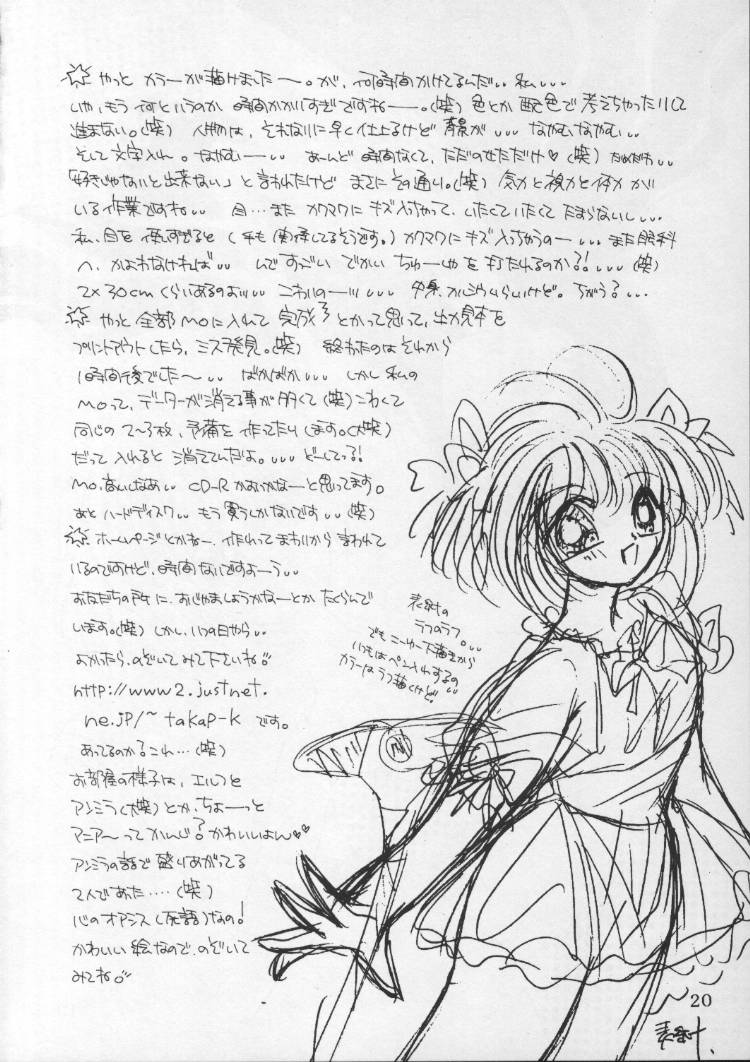 ☆ やっと カラーが描けました〜。が、何時間かけてるんだ!! 私、、、
いや、もう 何というのか 時間かかりすぎですねー。(笑) 色とか 配色で 考えちゃったりして
進まない。(笑) 人物は、それなりに早く仕上るけど 背景が、、、なやむなやむ、、
そして文字入れ。なやむー、、 あーんど 時間なくて、ただのせただけ♡(笑)
「好きじゃないと出来ない」と 言われたけど まさに その通り。(笑) 気力と視力と体力 が
いる作業ですね、、 目…また カクマクに キズ入っちゃって、いたくていたくて たまらないし、、、
私、目を 使いすぎると (手も 関係してるそうです。) カクマクに キズ入っちゃうの〜、、、また 眼科
へ、かよわなければ、、 んで すっごい でかい ちゅーしゃ を 打たれるのか?!、、、(笑)
2×30cm くらいあるのよ、、、 こわいの〜、、、
☆ やっと 全部 MOに入れて 完成 とかって思って、出力見本を
プリントアウトしたら、ミス発見。(笑) 終わったのは それから
1時間後でした〜、、 ばかばか、、、 しかし 私の
MOって、データーが 消える事が 多くて(笑) こわくて
同じの 2〜3枚、予備を 作ってたりします。(大笑)
だって 入れると 消えてんだよ。、、、どーしてっ!
MO、高いしなあ、、 CD-R かおいかなーと思ってます。
あと ハードディスク、、 もう 買うしかないです、、(笑)
☆ ホームページとかねー、作れって まわりから 言われて
いるのですけど、時間ないですよーう、、
あなたちの所に、おじゃましようかなーとか たくらんで
います。(笑) しかし、いつの日やら、、
よかったら、のぞいて みて 下さいね
http://www2.justnet.
ne.jp/~takap-k です。
あってるのか? これ…(笑)
お部屋の様子は、エルフと
アンミラ(大笑)とか、ちょーっと
マニア〜って かんじ? かわいいよん♡♡
アンミラの話で 盛りあがってる
てんであた‥‥(笑)
心のオアシス(死語)なの!
かわいい絵なので、のぞいて
みてね
表紙の
ラフのラフ。、、
でも こーゆー下描きから
いきなりペン入れするの
カラーはラフ描くけど。
20